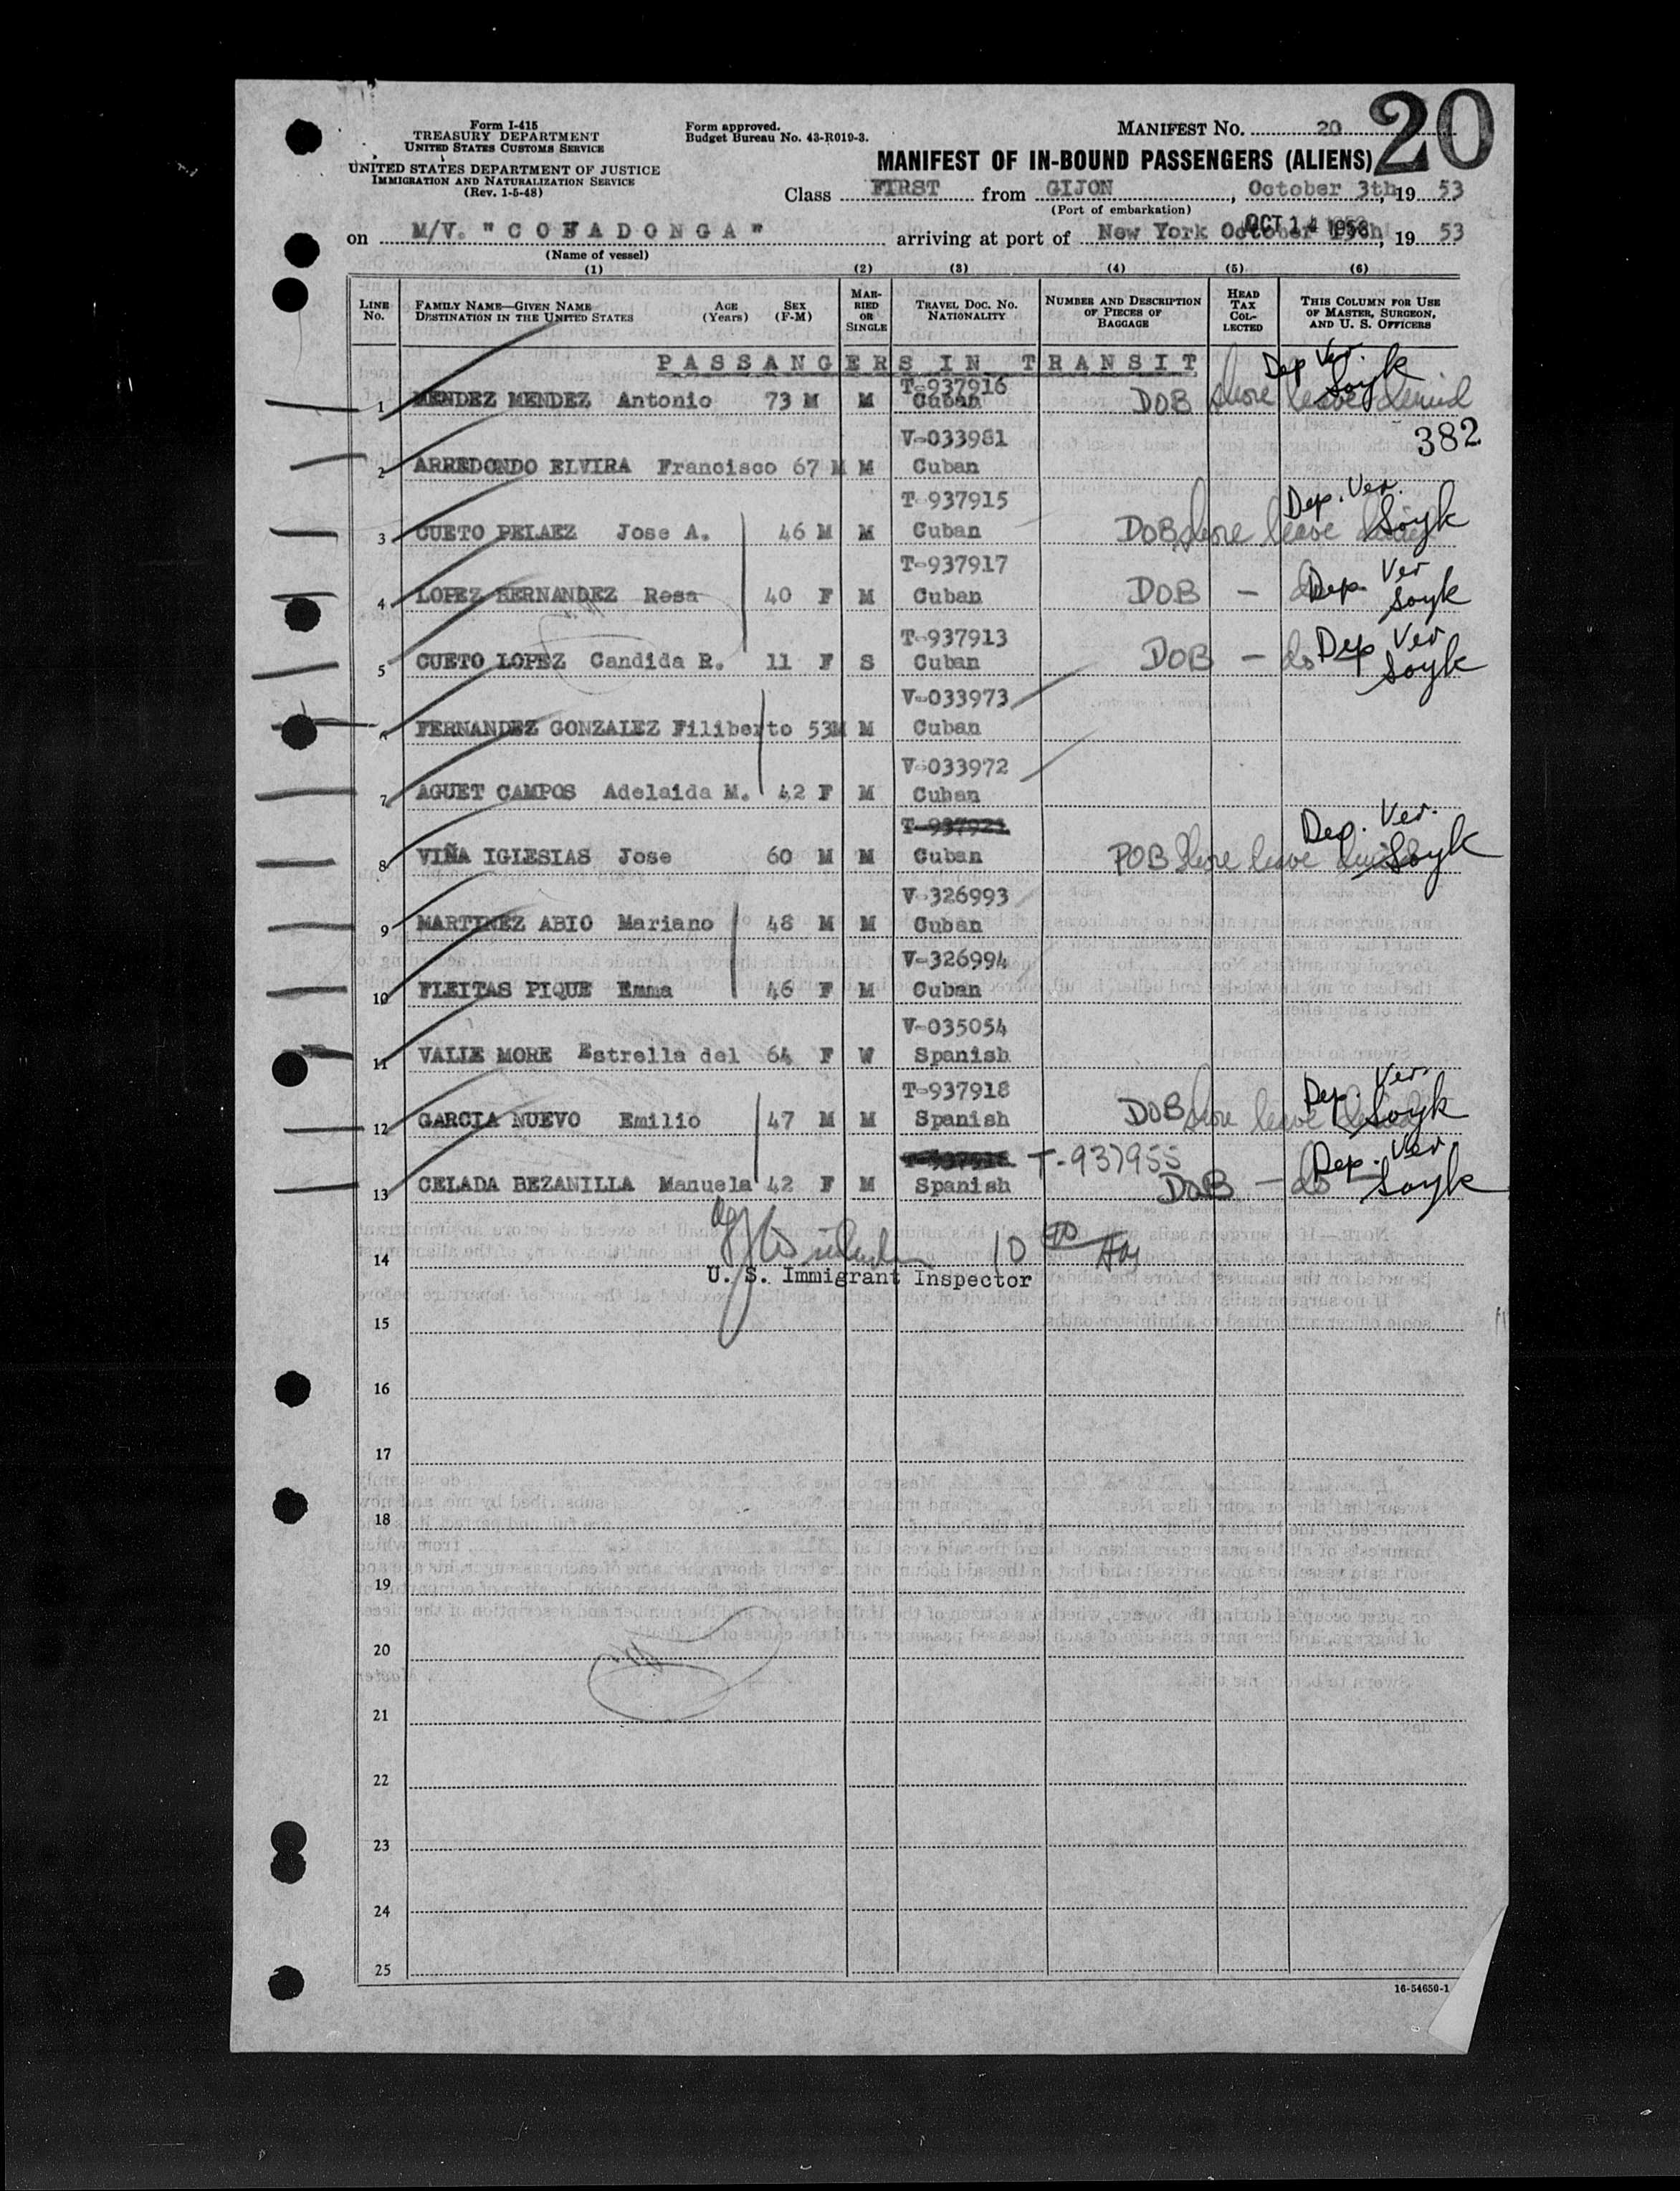 20
Form I-415
TREASURY DEPARTMENT
UNITED STATES CUSTOMS SERVICE
UNITED STATES DEPARTMENT OF JUSTICE
IMMIGRATION AND NATURALIZATION SERVICE
(Rev. 1-5-48)
Form approved.
Budget Bureau No. 43-R019-3.
MANIFEST No. 20
MANIFEST OF IN-BOUND PASSENGERS (ALIENS)
Class FIRST from GIJON, October 3th, 19 53
(Port of embarkation)
on M/V. "COFADONGA" arriving at port of New York October 13th, 19 53
OCT 14 1953
(Name of vessel)
(1) (2) (3) (4) (5) (6)
LINE No. FAMILY NAME—GIVEN NAME DESTINATION IN THE UNITED STATES AGE (Years) SEX (F-M) MARRIED OR SINGLE TRAVEL DOC. No. NATIONALITY NUMBER AND DESCRIPTION OF PIECES OF BAGGAGE HEAD TAX COLLECTED THIS COLUMN FOR USE OF MASTER, SURGEON, AND U. S. OFFICERS
PASSANGERS IN TRANSIT
T-937916 Dep Ver. Soyk
1 MENDEZ MENDEZ Antonio 73 M M Cuban DOB shore leave denied
V-033981 382
2 ARREDONDO ELVIRA Francisco 67 M M Cuban
T-937915 Dep. Ver. Soyk
3 CUETO PELAEZ Jose A. 46 M M Cuban DOB shore leave
T-937917 Dep. Ver
4 LOPEZ HERNANDEZ Rosa 40 F M Cuban DOB — Soyk
T-937913 Dep Ver
5 CUETO LOPEZ Candida R. 11 F S Cuban DOB — do Soyk
V-033973
6 FERNANDEZ GONZALEZ Filiberto 53M M Cuban
V-033972
7 AGUET CAMPOS Adelaida M. 42 F M Cuban
T-937921 Dep. Ver.
8 VIÑA IGLESIAS Jose 60 M M Cuban POB shore leave Soyk
V-326993
9 MARTINEZ ABIO Mariano 48 M M Cuban
V-326994
10 FLEITAS PIQUE Emma 46 F M Cuban
V-035054
11 VALLE MORE Estrella del 64 F W Spanish
T-937918 Dep. Ver.
12 GARCIA NUEVO Emilio 47 M M Spanish DOB shore leave Soyk
T-937955 Dep. Ver
13 CELADA BEZANILLA Manuela 42 F M Spanish DOB — do Soyk
14
U. S. Immigrant Inspector
15
16
17
18
19
20
21
22
23
24
25
16-54650-1